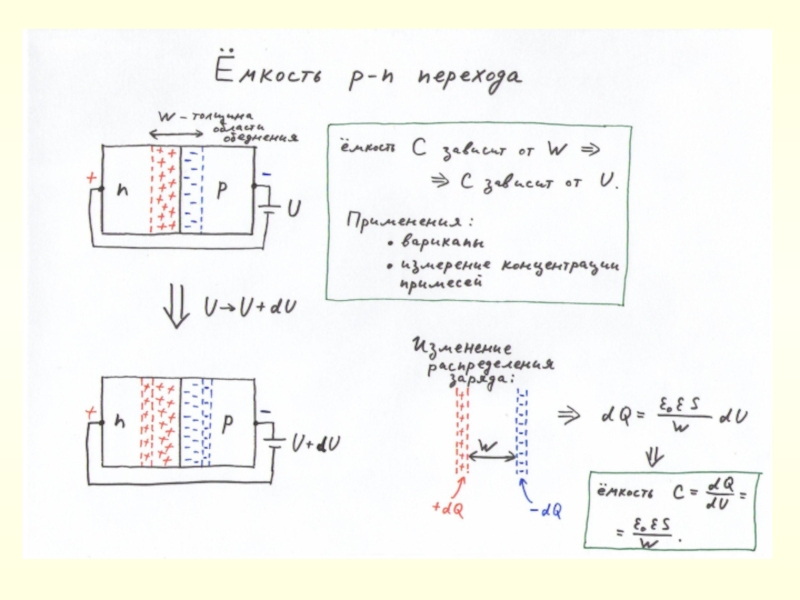 Ёмкость p-n перехода
W - толщина
области
обеднения
+ n + + + - - - p -
U
ёмкость C зависит от W ⇒
⇒ C зависит от U.
Применения:
• варикапы
• измерение концентрации
примесей
U→U+dU
+ n + + + - - - p -
U+dU
Изменение
распределения
заряда:
W
+dQ
-dQ
⇒ dQ = ε₀εS/W dU
⇓
ёмкость C = dQ/dU =
= ε₀εS/W.